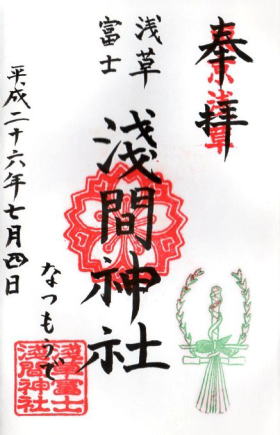 奉拝
東京浅草
浅草
富士
淺間神社
なつもうで
平成二十六年七月四日
淺草富士
淺間神社